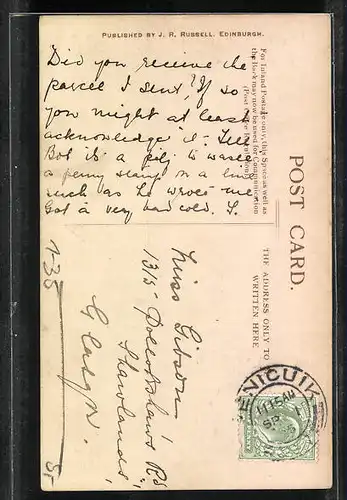 PUBLISHED BY J. R. RUSSELL, EDINBURGH.
Did you receive the
parcel I sent? If so
you might at least
acknowledge it - Tell
Bob it's a pity to waste
a penny stamp on a line
such as he wrote me
Got a very bad cold.
For Inland Postage only, this Space as well as
the Back may now be used for Communication
POST CARD.
THE ADDRESS ONLY TO
WRITTEN HERE
Miss Gibson
1315 Pollokshaws Rd
Shawlands
Glasgow.
ENICUIK
11 15 AM
SP